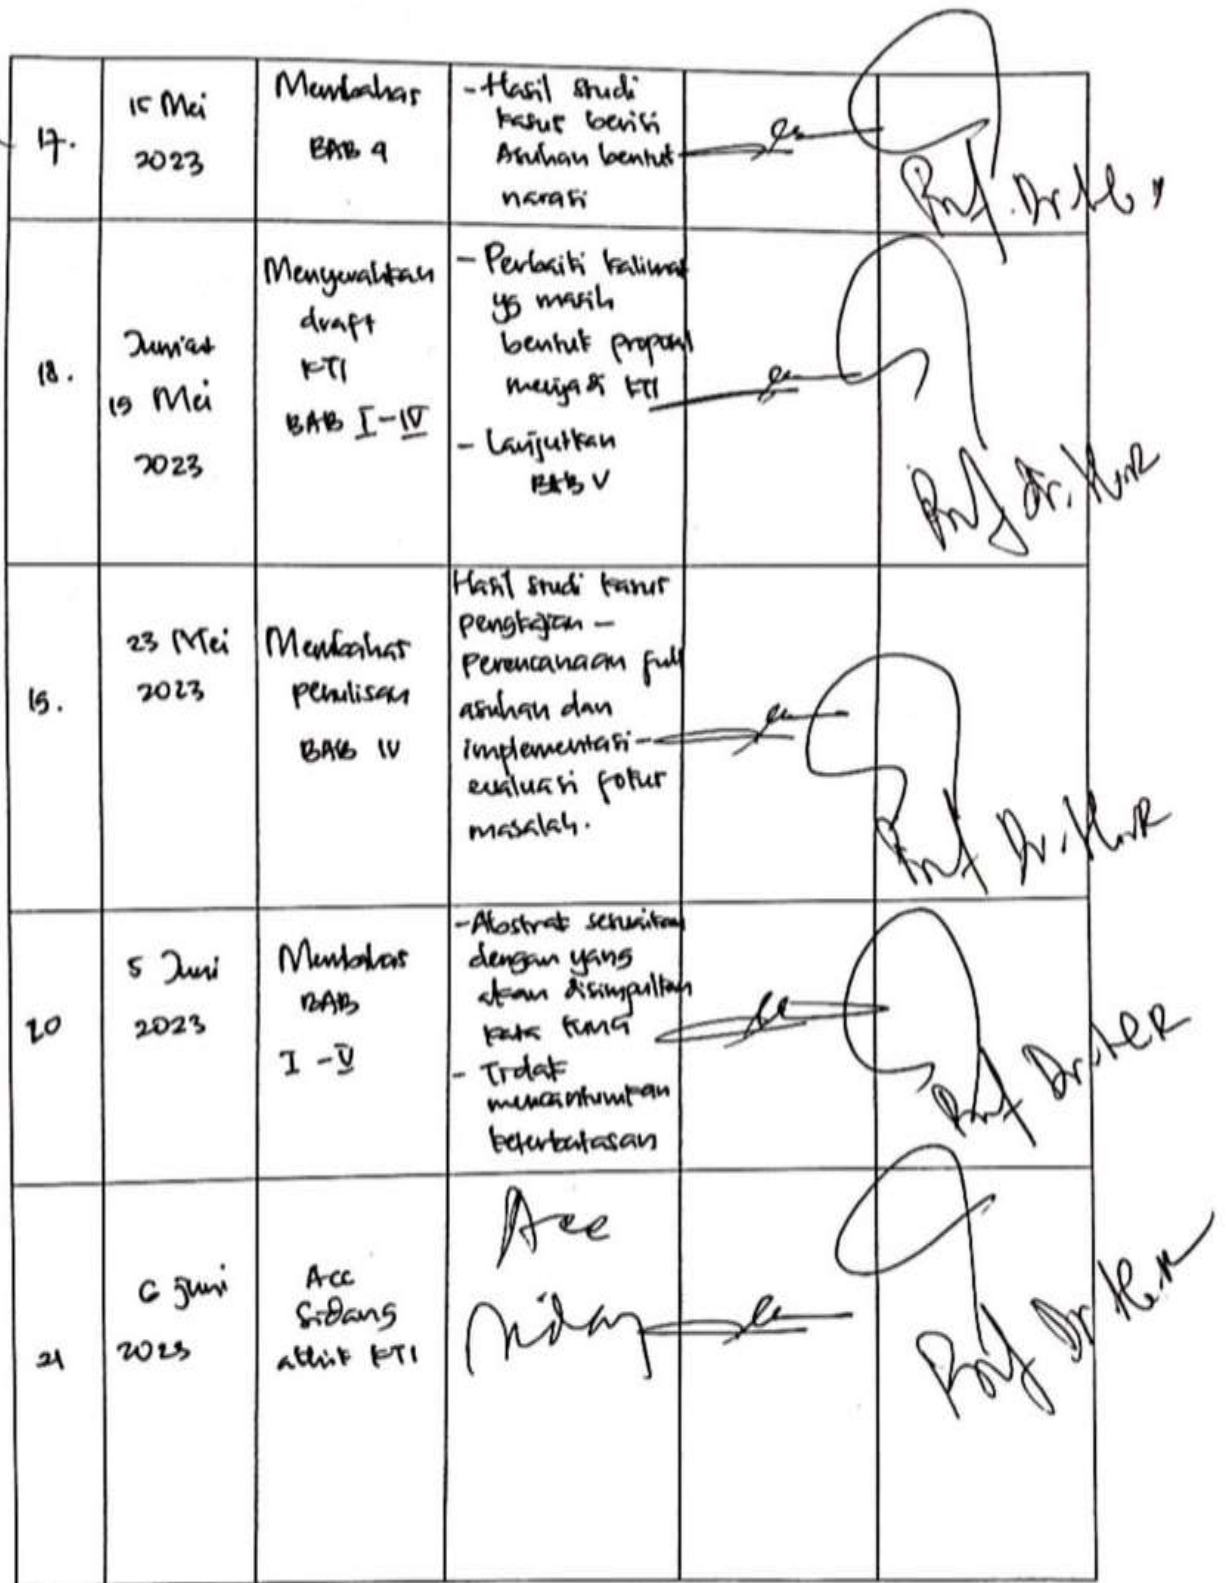 17.
15 Mei
2023
Membahas
BAB 4
- Hasil studi
kasus berisi
Asuhan bentuk
narasi
Prof. Dr.
18.
Jumat
19 Mei
2023
Menyerahkan
draft
KTI
BAB I-IV
- Perbaiki kalimat
yg masih
bentuk proposal
menjadi KTI
- Lanjutkan
BAB V
Prof Dr. H.R
19.
23 Mei
2023
Membahas
penulisan
BAB IV
Hasil studi kasus
pengkajian -
Perencanaan full
asuhan dan
implementasi -
evaluasi fokus
masalah.
Prof Dr. H.R
20
5 Juni
2023
Membahas
BAB
I - V
- Abstrak sesuaikan
dengan yang
akan disimpulkan
kata
- Tidak
mencantumkan
keterbatasan
Prof Dr. H.R
21
6 Juni
2023
Acc
Sidang
akhir KTI
Acc
sidang
Prof Dr H.R